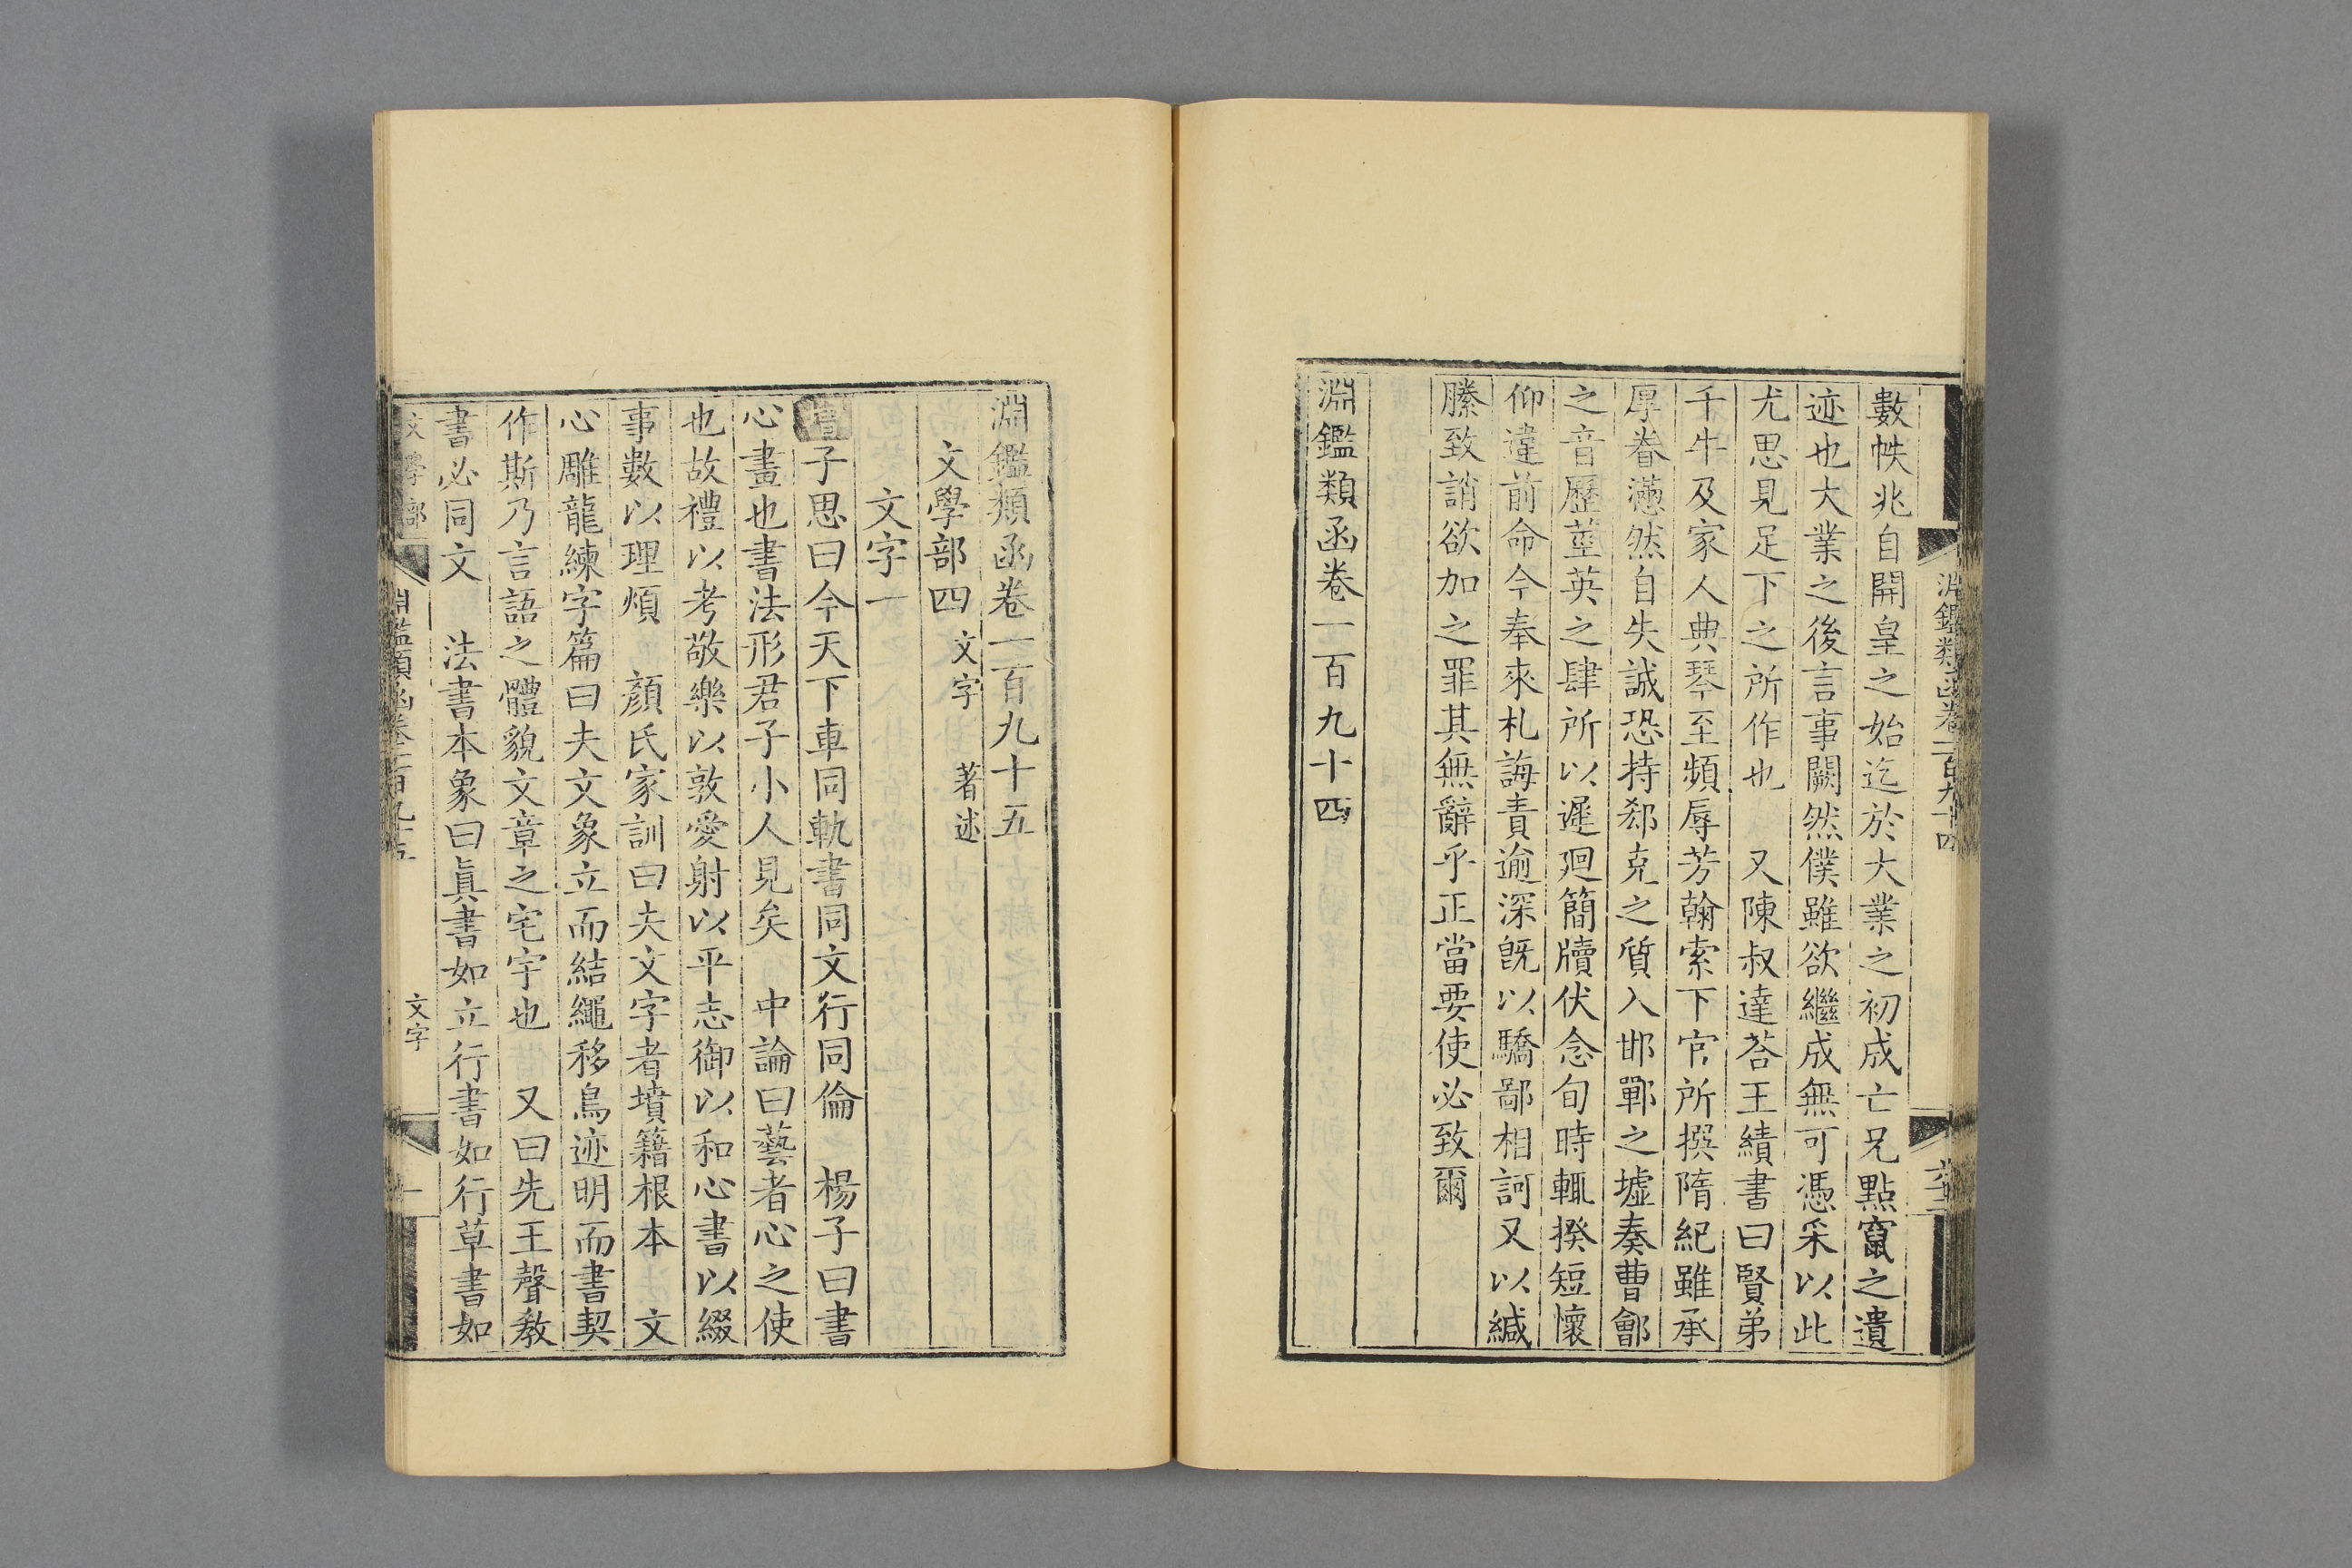 數帙兆自開皇之始迄於大業之初成亡兄點竄之遺
迹也大業之後言事闕然僕雖欲繼成無可憑采以此
尤思見足下之所作也　又陳叔達荅王績書曰賢弟
千牛及家人典琴至頻辱芳翰索下官所撰隋紀雖承
厚眷懣然自失誠恐持郄克之質入邯鄲之墟奏曹鄶
之音歷莖英之肆所以遲迴簡牘伏念旬時輒揆短懷
仰違前命今奉來札誨責逾深旣以驕鄙相訶又以緘
縢致誚欲加之罪其無辭乎正當要使必致爾
淵鑑類函卷一百九十四
淵鑑類函卷一百九十四
淵鑑類函卷一百九十五
文學部四　文字　著述
文字一
子思曰今天下車同軌書同文行同倫　楊子曰書
心畫也書法形君子小人見矣　中論曰藝者心之使
也故禮以考敬樂以敦愛射以平志御以和心書以綴
事數以理煩　顏氏家訓曰夫文字者墳籍根本　文
心雕龍練字篇曰夫文象立而結繩移鳥迹明而書契
作斯乃言語之體貌文章之宅宇也　又曰先王聲敎
書必同文　法書本象曰眞書如立行書如行草書如
文學部　淵鑑類函卷一百九十五　文字　一